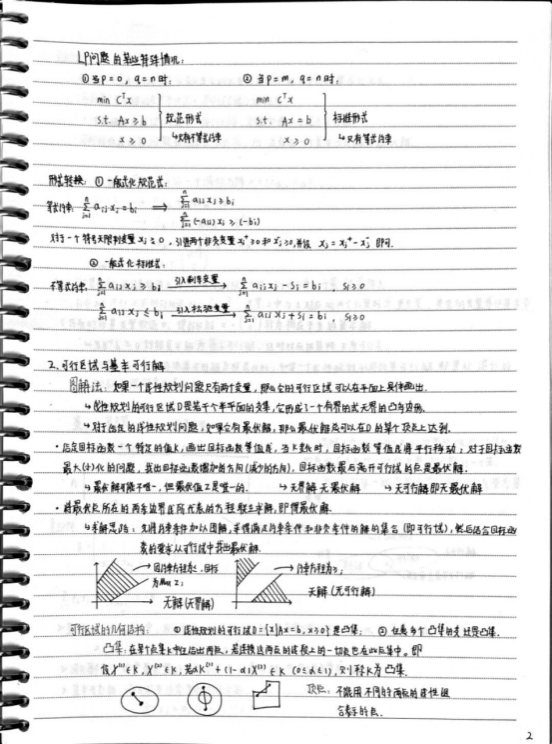 LP问题的某些特殊情况:
① 当p=0, q=n时, ② 当p=m, q=n时,
min CᵀX min CᵀX
s.t. Ax≥b 规范形式 s.t. Ax=b 标准形式
x≥0 ↳只有不等式约束 x≥0 ↳只有等式约束
形式转换: ① 一般式化规范式:
等式约束: ∑ⁿⱼ₌₁ aᵢⱼxⱼ=bᵢ ⟹ ∑ⁿⱼ₌₁ aᵢⱼxⱼ≥bᵢ
∑ⁿⱼ₌₁ (-aᵢⱼ)xⱼ≥(-bᵢ)
对于一个符号无限制变量xⱼ≥0, 引进两个非负变量xⱼ⁺≥0和xⱼ⁻≥0, 并设 xⱼ=xⱼ⁺-xⱼ⁻ 即可.
② 一般式化标准式:
不等式约束: ∑ⁿⱼ₌₁ aᵢⱼxⱼ≥bᵢ 引入剩余变量→ ∑ⁿⱼ₌₁ aᵢⱼxⱼ-Sᵢ=bᵢ, Sᵢ≥0
∑ⁿⱼ₌₁ aᵢⱼxⱼ≤bᵢ 引入松弛变量→ ∑ⁿⱼ₌₁ aᵢⱼxⱼ+Sᵢ=bᵢ, Sᵢ≥0
2. 可行区域与基本可行解
图解法: 如果一个线性规划问题只有两个变量, 那么它的可行区域可以在平面上具体画出.
↳线性规划的可行区域D是若干个半平面的交集, 它形成了一个有界的或无界的凸多边形.
↳对于给定的线性规划问题, 如果它有最优解, 那么最优解总可以在D的某个顶点上达到.
· 给定目标函数一个特定的值k, 画出目标函数等值线, 当k变化时, 目标函数等值线将平行移动; 对于目标函数
最大(小)化的问题, 找出目标函数增加的方向(减少的方向), 目标函数最后离开可行域的点是最优解.
↳最优解可能不唯一, 但最优值Z是唯一的. ↳无界解无最优解 ↳无可行解即无最优解
· 将最优点所在的两条边界直线代表的方程联立求解, 即得最优解
↳求解思路: 先将约束条件加以图解, 求得满足约束条件和非负条件的解的集合(即可行域), 然后结合目标函
数的要求从可行域中找出最优解
目标
为Max Z;
无解(无界解) 无解(无可行解)
可行区域的几何结构: ① 线性规划的可行域D={x|Ax=b, x≥0}是凸集; ② 任意多个凸集的交还是凸集.
凸集: 在某个点集K中任给出两点, 若连接这两点的线段上的一切点总在此点集中, 即
设X⁽¹⁾∈K, X⁽²⁾∈K, 若αX⁽¹⁾+(1-α)X⁽²⁾∈K (0≤α≤1), 则称K为凸集.
顶点: 不能用不同的两点的线性组
合表示的点.
2